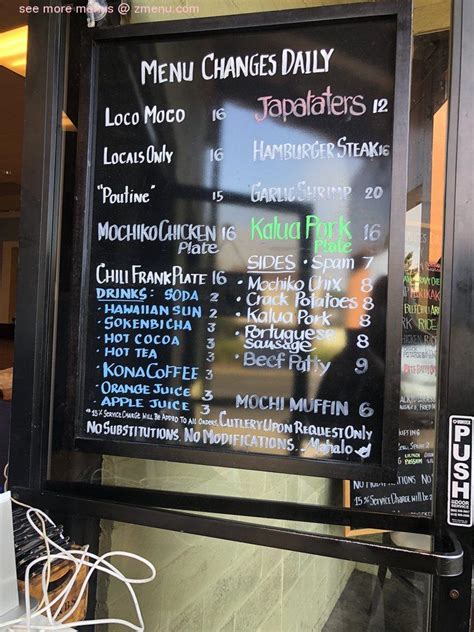 see more menus @ zmenu.com
MENU CHANGES DAILY
LOCO MOCO 16
LOCALS ONLY 16
"POUTINE" 15
MOCHIKO CHICKEN Plate 16
CHILI FRANK PLATE 16
DRINKS: SODA 2
• HAWAIIAN SUN 2
• SOKENBICHA 3
• HOT COCOA 3
• HOT TEA 3
KONA COFFEE 3
• ORANGE JUICE 3
APPLE JUICE 3
JAPATATERS 12
HAMBURGER STEAK 16
GARLIC SHRIMP 20
KALUA PORK Plate 16
SIDES • Spam 7
• Mochiko Chix 8
• Crack Potatoes 8
• Kalua Pork 8
• Portuguese Sausage 8
• Beef Patty 9
MOCHI MUFFIN 6
*15% SERVICE CHARGE WILL BE ADDED TO ALL ORDERS. CUTLERY UPON REQUEST ONLY
NO SUBSTITUTIONS. NO MODIFICATIONS... Mahalo
PUSH
INDOOR
15% SERVICE CHARGE WILL BE